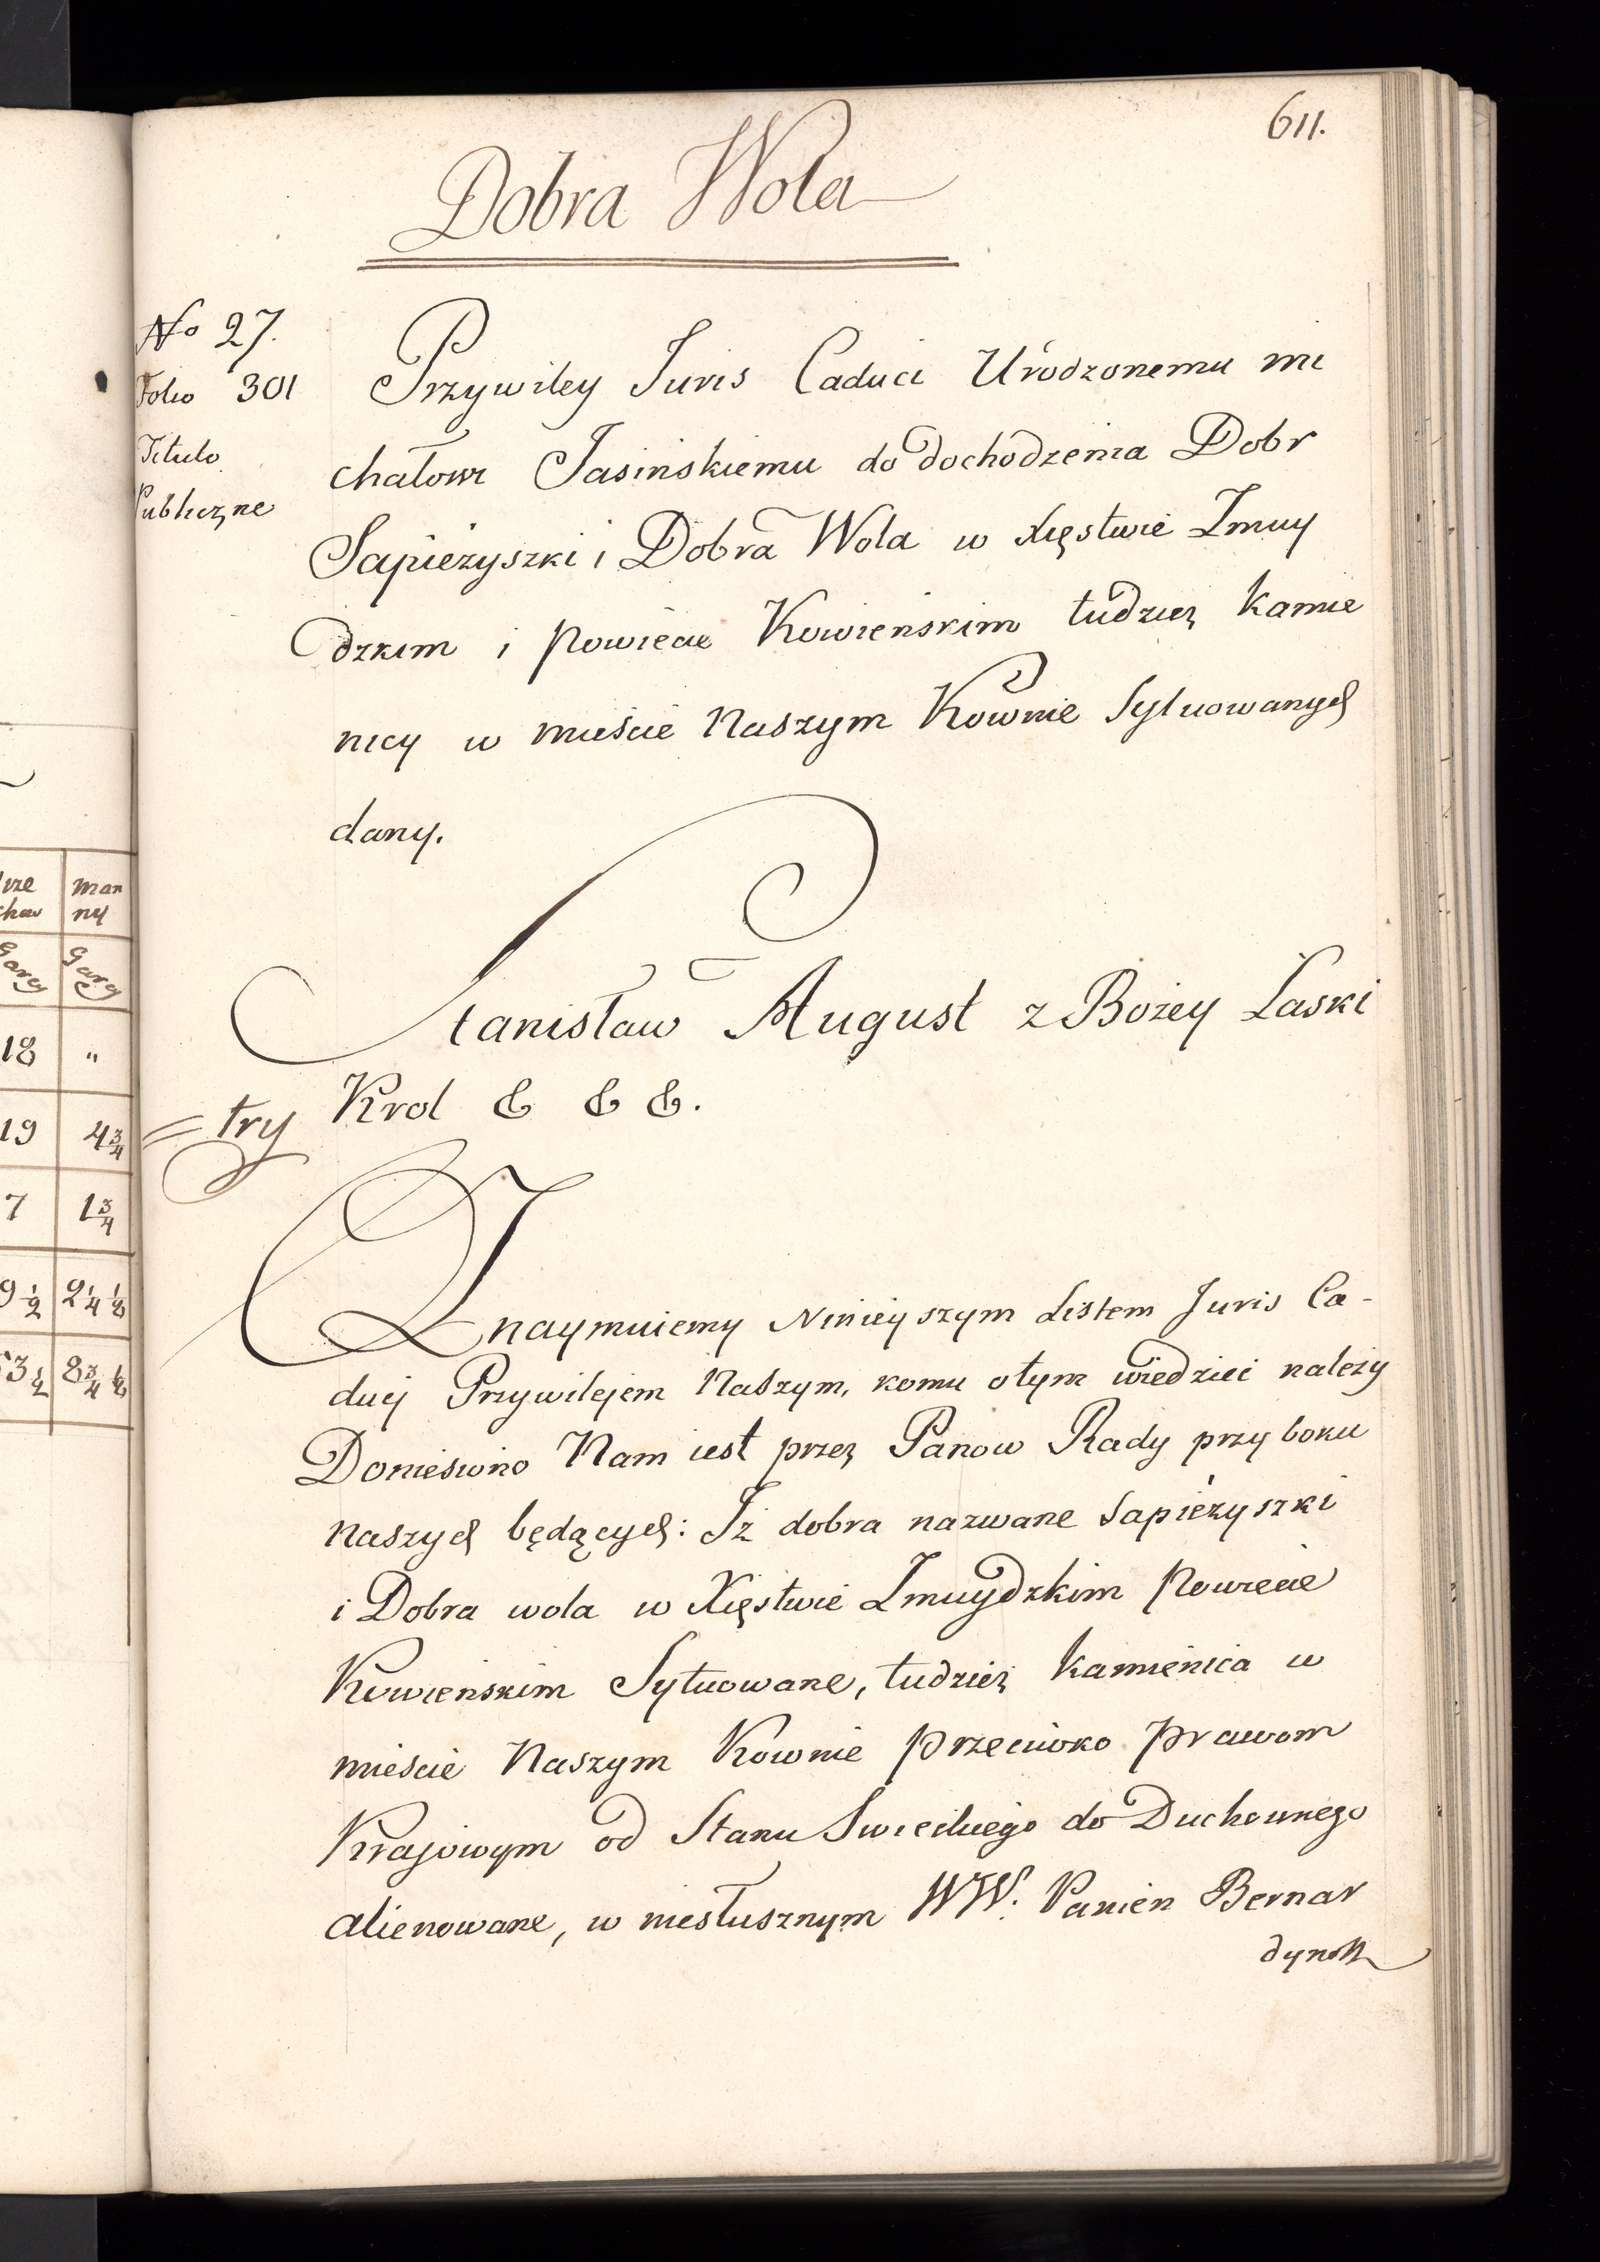 611.
Dobra Wola
No 27.
Folio 301
Titulo
Publiczne
Przywiley Juris Caduci Urodzonemu mi
chałowi Jasinskiemu do dochodzenia Dobr
Sapieżyszki i Dobra Wola w Xięstwie Zmuy
dzkim i Powiecie Kowienskim tudzież kamie
nicy w mieście Naszym Kownie Sytuowanych
dany.
Stanisław August z Bożey Łaski
Krol & & &.
= try
Znaymuiemy Ninieyszym Listem Juris Ca-
ducij Przywilejem Naszym, komu otym wiedzieć należy
Doniesiono Nam iest przez Panow Rady przy boku
naszych będących: Iż dobra nazwane Sapieżyszki
i Dobra wola w Xięstwie Zmuydzkim Powiecie
Kowienskim Sytuowane, tudzież kamienica w
mieście Naszym Kownie przeciwko prawom
Krajowym od Stanu Swieckiego do Duchownego
alienowane, w niesłusznym WW. Panien Bernar
dynek
man
ny
Garcy
18 "
19 4 3/4
7 1 3/4
9 1/2 2 1/4 1/8